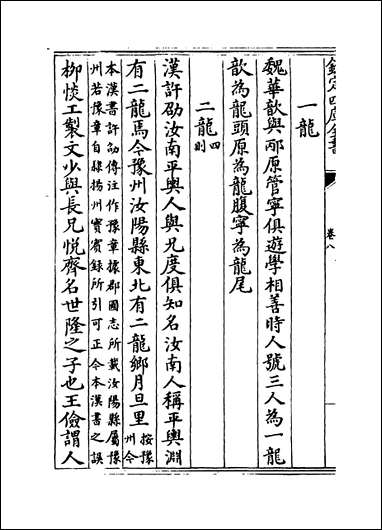 欽定四庫全書
卷八
一龍
魏華歆與邴原管寧俱遊學相善時人號三人為一龍
歆為龍頭原為龍腹寧為龍尾
二龍四則
漢許劭汝南平輿人與兄虔俱知名汝南人稱平輿淵
有二龍焉今豫州汝陽縣東北有二龍鄉月旦里按豫州今
本漢書許劭傳注作豫章據郡國志所載汝陽縣屬豫
州若豫章自隸揚州實賓錄所引可正今本漢書之誤
柳惔工製文少與長兄悅齊名世隆之子也王儉謂人